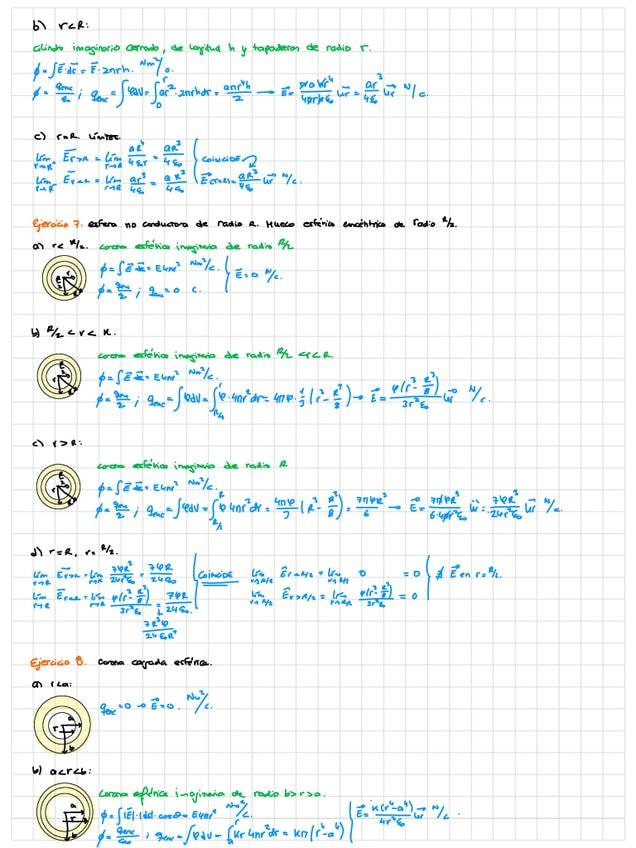 b) r<R:
cilindro imaginario cerrado, de longitud h y tapaderas de radio r.
ϕ=∫E⃗·ds⃗ = E⃗·2πrh. Nm²/c.
ϕ= qenc/ε₀ ; qenc=∫ρdV=∫₀ʳ ar²·2πrhdr= aπr⁴h/2 → E⃗= πahr⁴/4πrhε₀ u⃗r = ar³/4ε₀ u⃗r N/c
c) r=R. LÍMITES.
lim r→R⁺ E⃗r>R = lim r→R aR⁴/4ε₀r = aR³/4ε₀
lim r→R⁻ E⃗r<R = lim r→R ar³/4ε₀ = aR³/4ε₀ } COINCIDE E⃗(r=R)= aR³/4ε₀ u⃗r N/c.
Ejercicio 7. esfera no conductora de radio R. Hueco esférico concéntrico de radio R/2.
a) r< R/2. corona esférica imaginaria de radio R/2
ϕ=∫E⃗·ds⃗= E4πr² Nm²/c.
ϕ= qenc/ ; qenc=0 C. } E⃗=0 N/c.
b) R/2 <r< R.
corona esférica imaginaria de radio R/2 <r<R.
ϕ=∫E⃗·ds⃗= E4πr² Nm²/c.
ϕ= qenc/ ; qenc=∫ρdV=∫ ρ·4πr²dr= 4πρ·1/3 (r³- R³/8) → E⃗= ρ(r³- R³/8)/3r²ε₀ u⃗r N/c.
c) r>R:
corona esférica imaginaria de radio R
ϕ=∫E⃗·ds⃗= E4πr² Nm²/c.
ϕ= qenc/ ; qenc=∫ρdV=∫ ρ4πr²dr= 4πρ/3 (R³- R³/8)= 7πρR³/6 → E⃗= 7πρR³/6·4πr²ε₀ u⃗= 7ρR³/24r²ε₀ u⃗r N/c.
d) r=R, r= R/2.
lim r→R E⃗r>R=lim r→R 7ρR³/24r²ε₀= 7ρR/24ε₀ } COINCIDE lim r→R/2 E⃗r<R/2= lim r→R/2 0 =0
lim r→R E⃗r<R=lim r→R ρ(r³- R³/8)/3r²ε₀= 7ρR/24ε₀ lim r→R/2 E⃗r>R/2= lim r→R/2 ρ(r³- R³/8)/3r²ε₀ =0 } ∄ E⃗ en r= R/2.
7R³ρ/24ε₀R²
Ejercicio 8. Corona cargada esférica.
a) r<a:
qenc=0 → E⃗=0. Nm²/c.
b) a<r<b:
corona esférica imaginaria de radio b>r>a.
ϕ=∫|E⃗|·|ds⃗|·cosθ= E4πr² Nm²/c.
ϕ= qenc/ε₀ ; qenc=∫ρdV=∫ₐʳ Kr4πr²dr= Kπ(r⁴-a⁴) } E⃗= K(r⁴-a⁴)/4r²ε₀ u⃗r N/c.